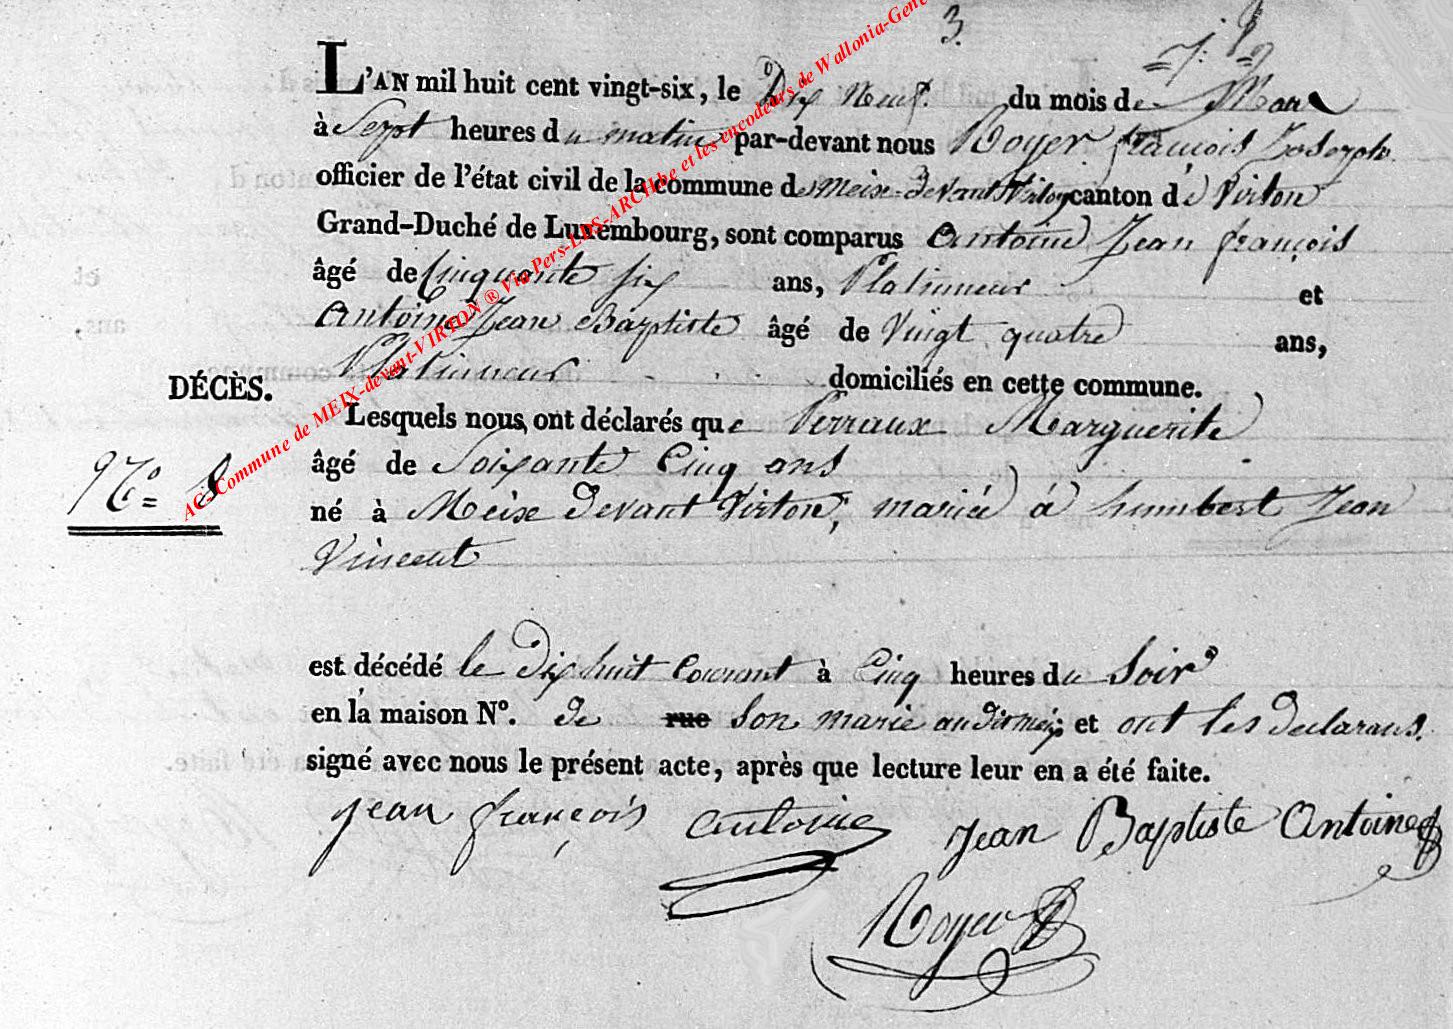 3.
L'AN mil huit cent vingt-six, le Dix Neuf du mois de Mars
à Sept heures du matin par-devant nous Royer françois Joseph
officier de l'état civil de la commune de Meix-devant Virton canton de Virton
Grand-Duché de Luxembourg, sont comparus Antoine Jean françois
âgé de Cinquante six ans, Platineur et
Antoine Jean Baptiste âgé de Vingt quatre ans,
Platineur domiciliés en cette commune.
DÉCÈS.
Lesquels nous ont déclarés que Perraux Marguerite
âgé de Soixante Cinq ans
No. 8
né à Meix devant Virton, mariée à humbert Jean
Vincent
est décédé le dix huit Courant à Cinq heures du Soir
en la maison No. de rue Son marie au dit meix et ont les declarans.
signé avec nous le présent acte, après que lecture leur en a été faite.
jean françois antoine Jean Baptiste Antoine
Royer
AC-Commune de MEIX-devant-VIRTON ® Via Pers-LDS-ARCH.be et les encodeurs de Wallonia-Gene